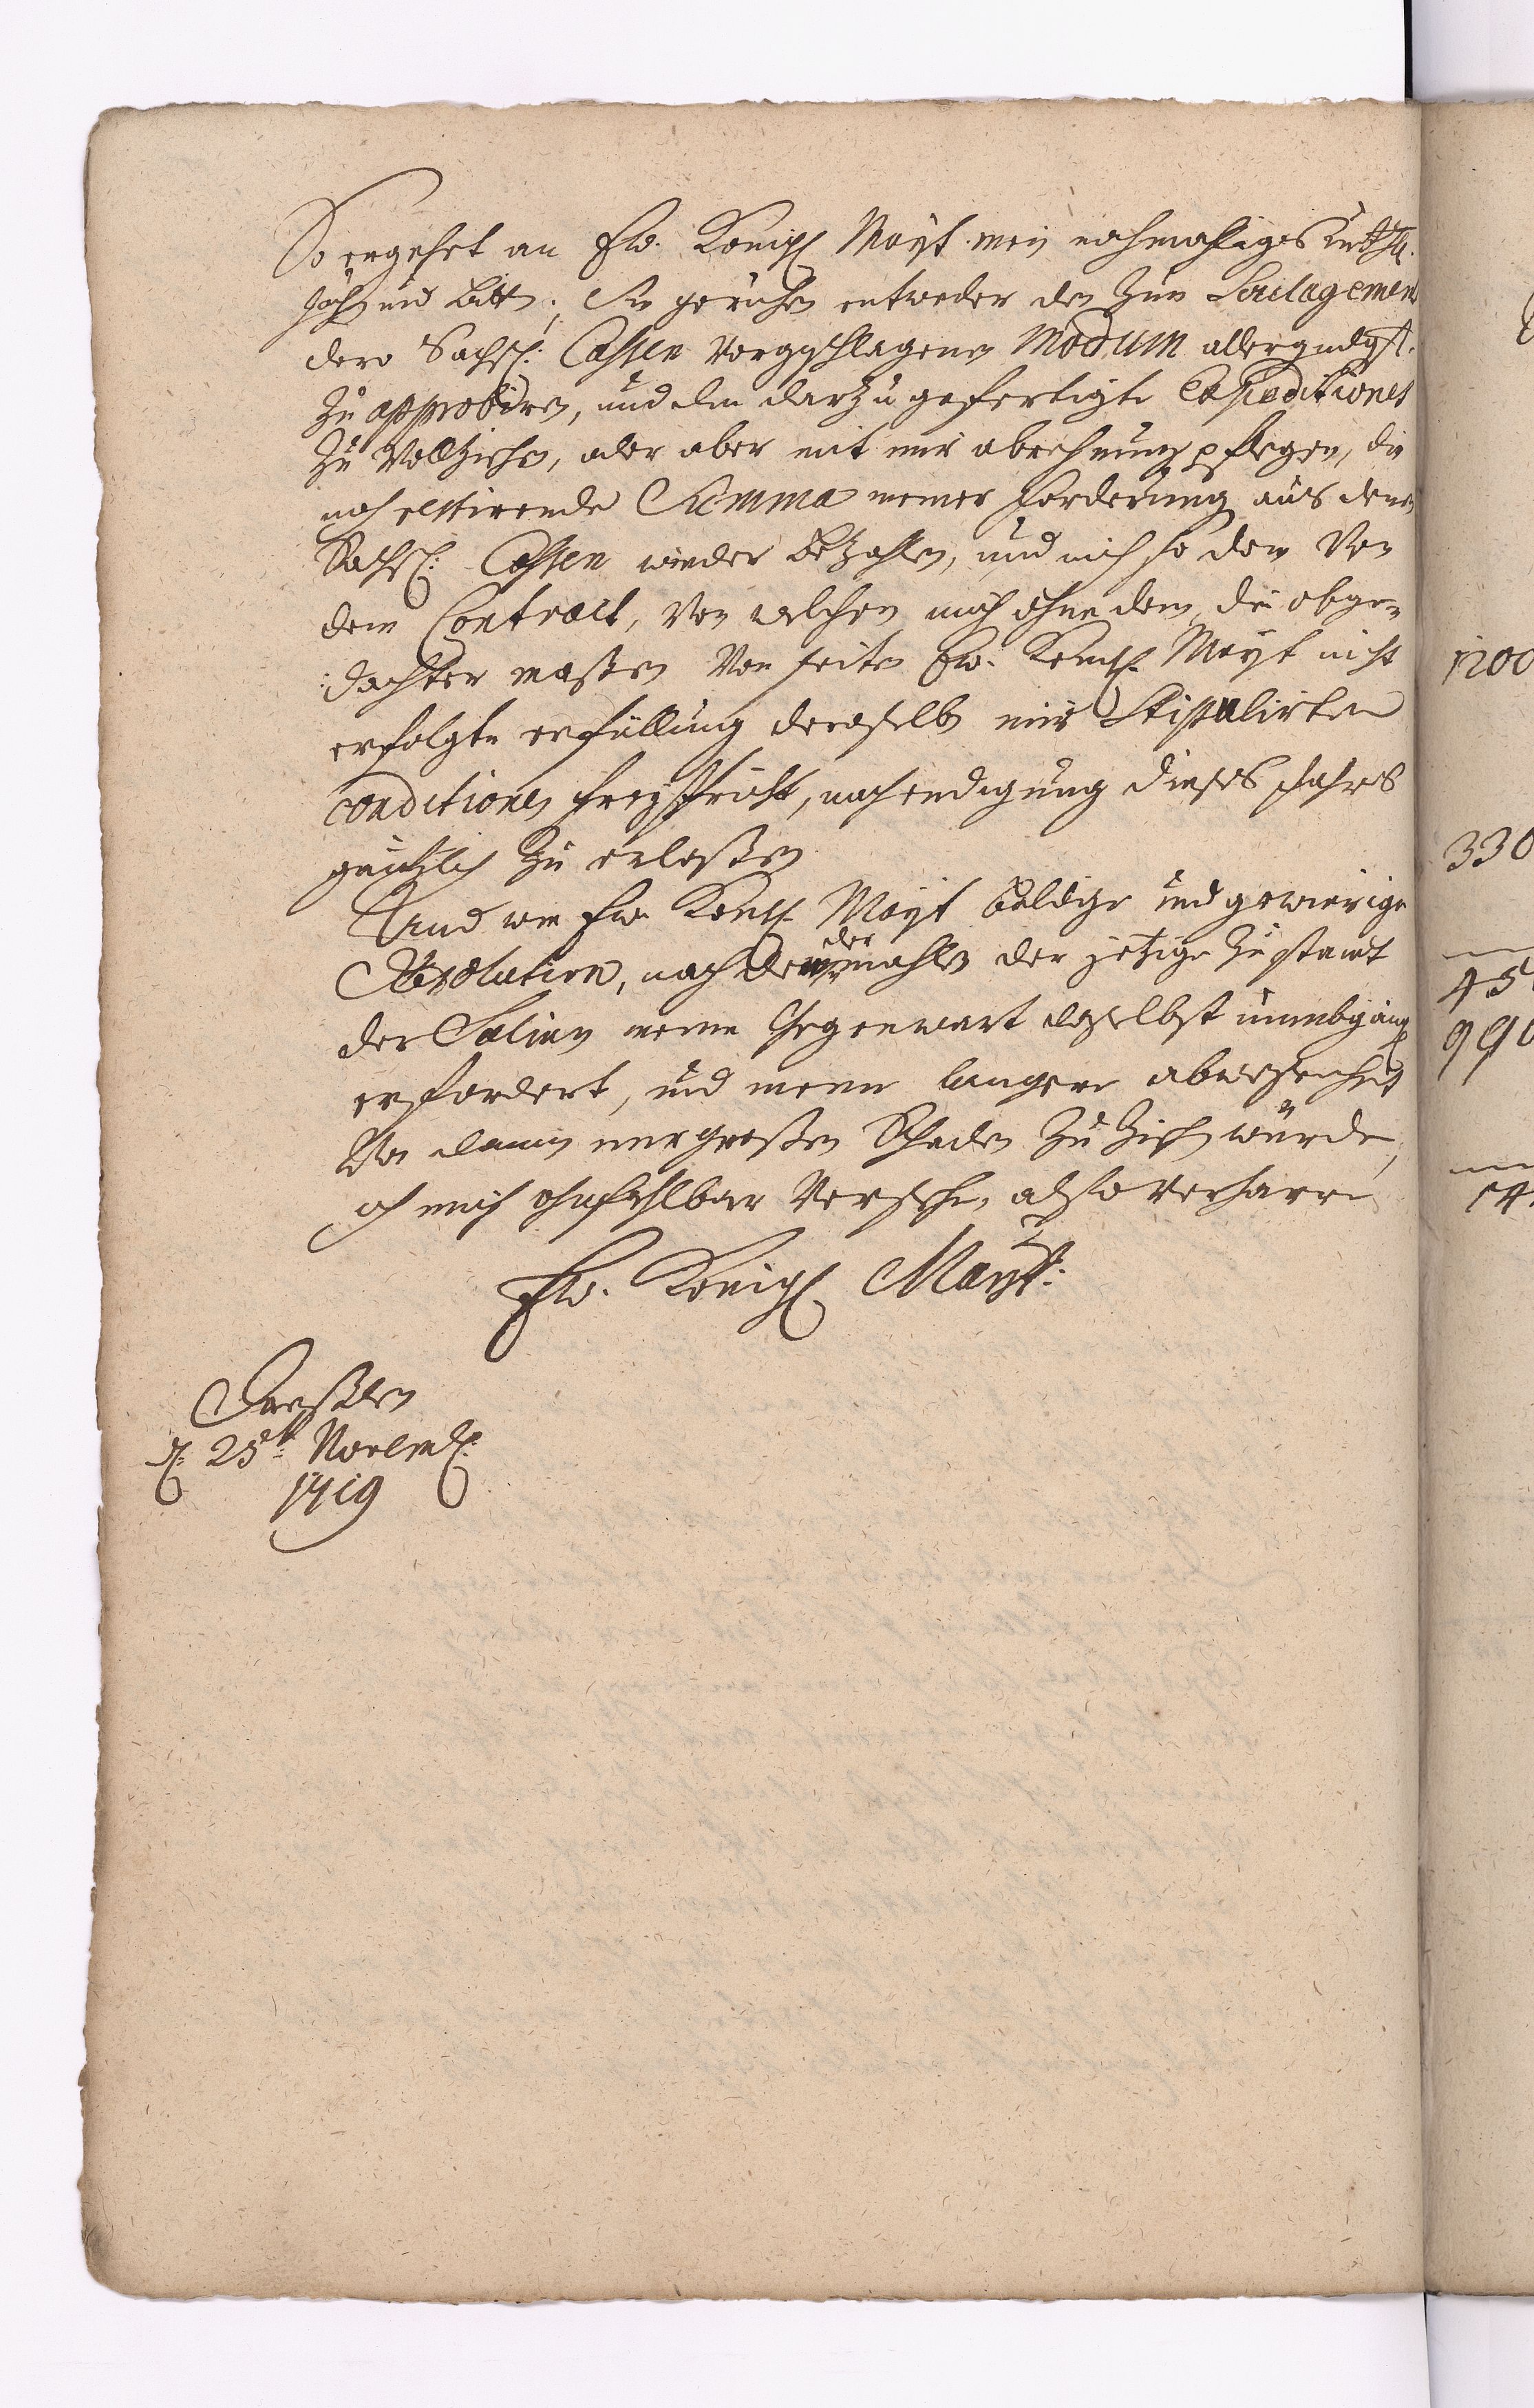 So ergehet an Ew. Königl. Mayt. mein nochmahliges unterth.
suchen und bitten, Sie geruhen entweder den zum Soulagement
dero Sächß. Cassen vorgeschlagenen Modum allergndgst.
zu approbiren, und die darzu gefertigte Expeditiones
zu vollziehen, oder aber mit mir abrechnung pflegen, die
noch restirende Summa meiner forderung aus denen
Sächß. Cassen wieder bezahlen, und mich so dann von
dem Contract, von welchen mich ohne dem die obge-
dachter maßen von seiten Ew. Königl. Mayt nicht
erfolgte erfüllung deroselben mir stipulirten
conditiones freyspricht, nach endigung dieses Jahres
gäntzlich zu erlaßen.
Und wie Ew. Königl. Mayt baldige und gewierige
Resolution, nachdem der mahlen der jetzige Zustandt
der Salinen meine Gegenwart daselbst unumbgängl.
erfordert, und meine längere abwesenheit
von dannen mir großen Schaden zu ziehen würde,
ich mich ohnfehlbar versehe, also verharre
Ew. Königl. Mayt.
Dreßden
d. 25t. Novembr.
1719
1200
330
45
990
14